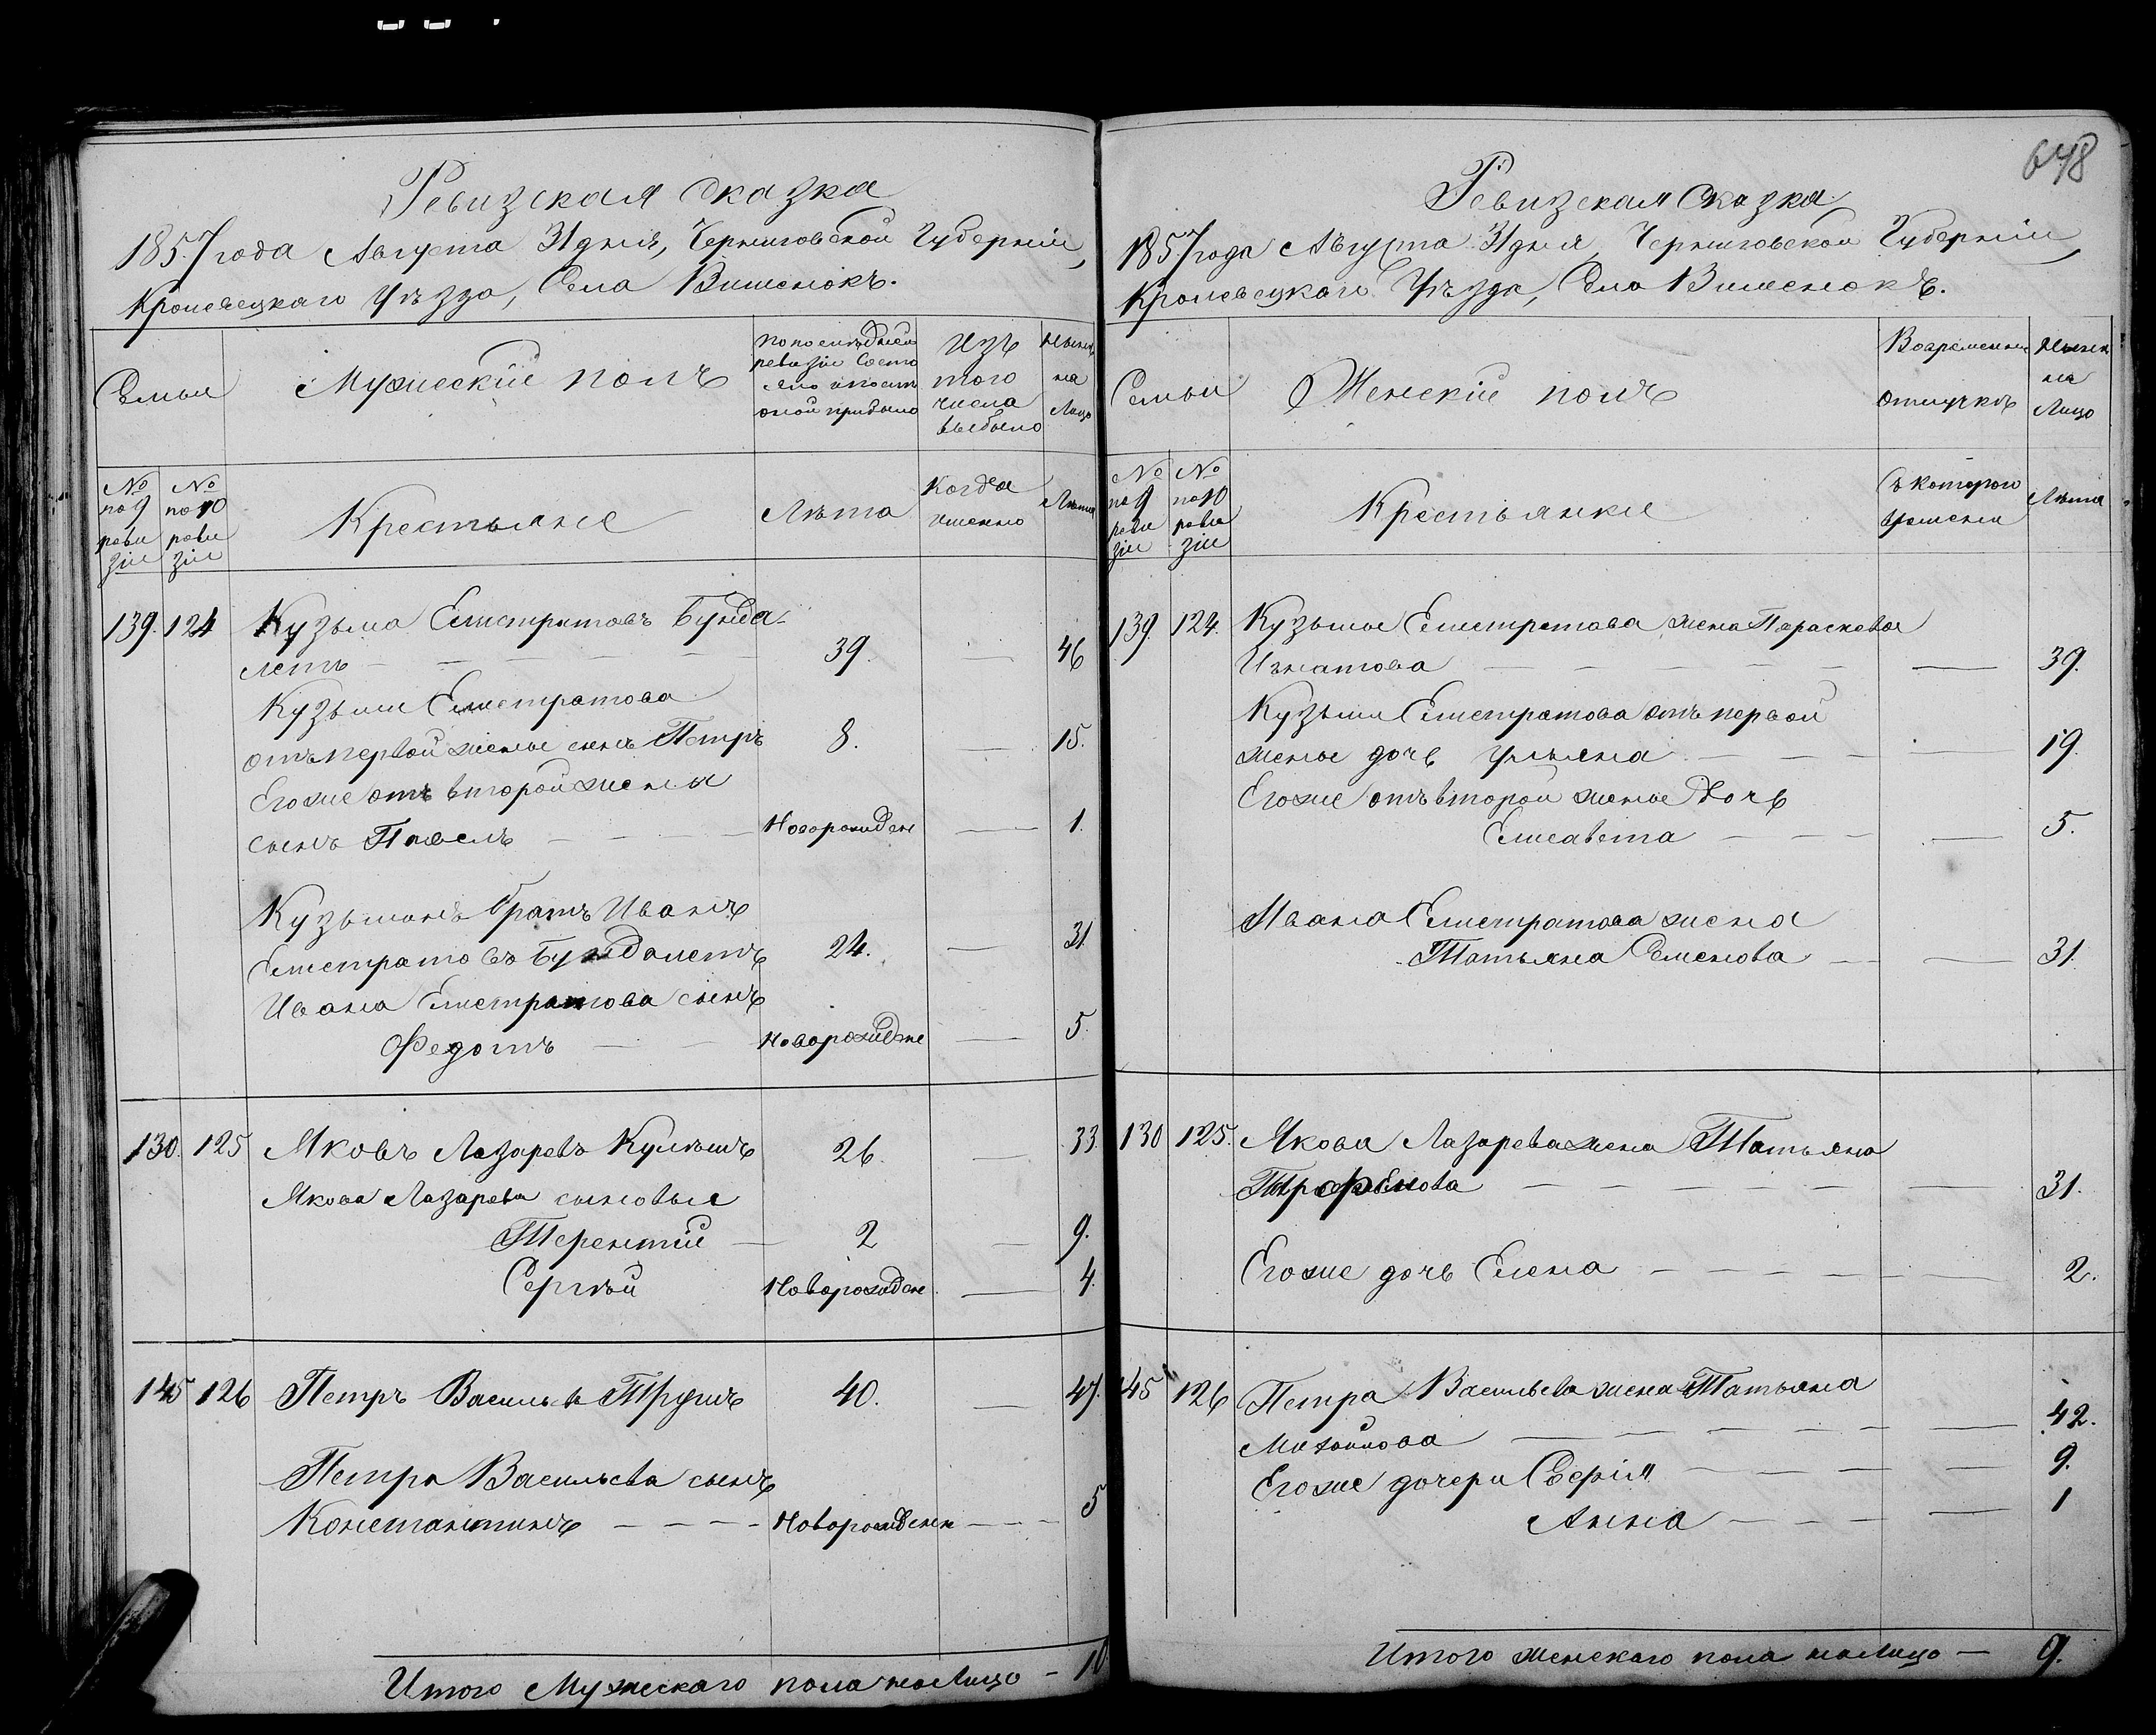 Ревизская сказка
1857 года Августа 31 дня, Черниговской Губерніи,
Кролевецкаго Уѣзда, Села Вишенокъ.
Семьи
Мужескій полъ
по последней
ревизіи состо
яло и после
оной прибыло
Изъ
того
числа
выбыло
Нынѣ
на
Лицо
№ по 9 ревизіи
№ по 10 ревизіи
Крестьяне
Лѣта
Когда
именно
Лѣта
139. 124 Кузьма Елистратовъ Бунда
летъ — 39. — 46
Кузьмы Елистратова
отъ первой жены сынъ Петръ 8. — 15.
Егоже отъ второй жены
сынъ Павелъ — Новорожден — 1.
Кузьминъ братъ Иванъ
Елистратовъ Бундалетъ 24. — 31
Ивана Елистратова сынъ
Федотъ — Новорожден — 5.
130. 125 Яковъ Лазаревъ Кулѣшъ 26. — 33.
Якова Лазарева сыновья
Терентій — 2 — 9.
Сергѣй Новорожден — 4.
145 126 Петръ Васильевъ Трушъ 40. — 47.
Петра Васильева сынъ
Константинъ — Новорожденн — 5
Итого Мужескаго пола налицо — 10
648
Ревизская сказка
1857 года Августа 31 дня, Черниговской Губерніи,
Кролевецкаго Уѣзда, Села Вишенокъ.
Семьи
Женскій полъ
Вовременной
отлучкѣ
Нынѣ
на
Лицо
№ по 9 ревизіи
№ по 10 ревизіи
Крестьянки
Съ котораго
времени
Лѣта
139. 124. Кузьмы Елистратова жена Параскева
Игнатова — 39.
Кузьмы Елистратова отъ первой
жены дочь Ульяна — 19.
Егоже отъ второй жены дочь
Елисавета — 5.
Ивана Елистратова жена
Татьяна Семенова — 31.
130 125. Якова Лазарева жена Татьяна
Трофимова — 31.
Егоже дочь Елена — 2.
145 126 Петра Васильева жена Татьяна
Михайлова — 42.
Егоже дочери Софія — 9.
Анна — 1
Итого женскаго пола налицо — 9.